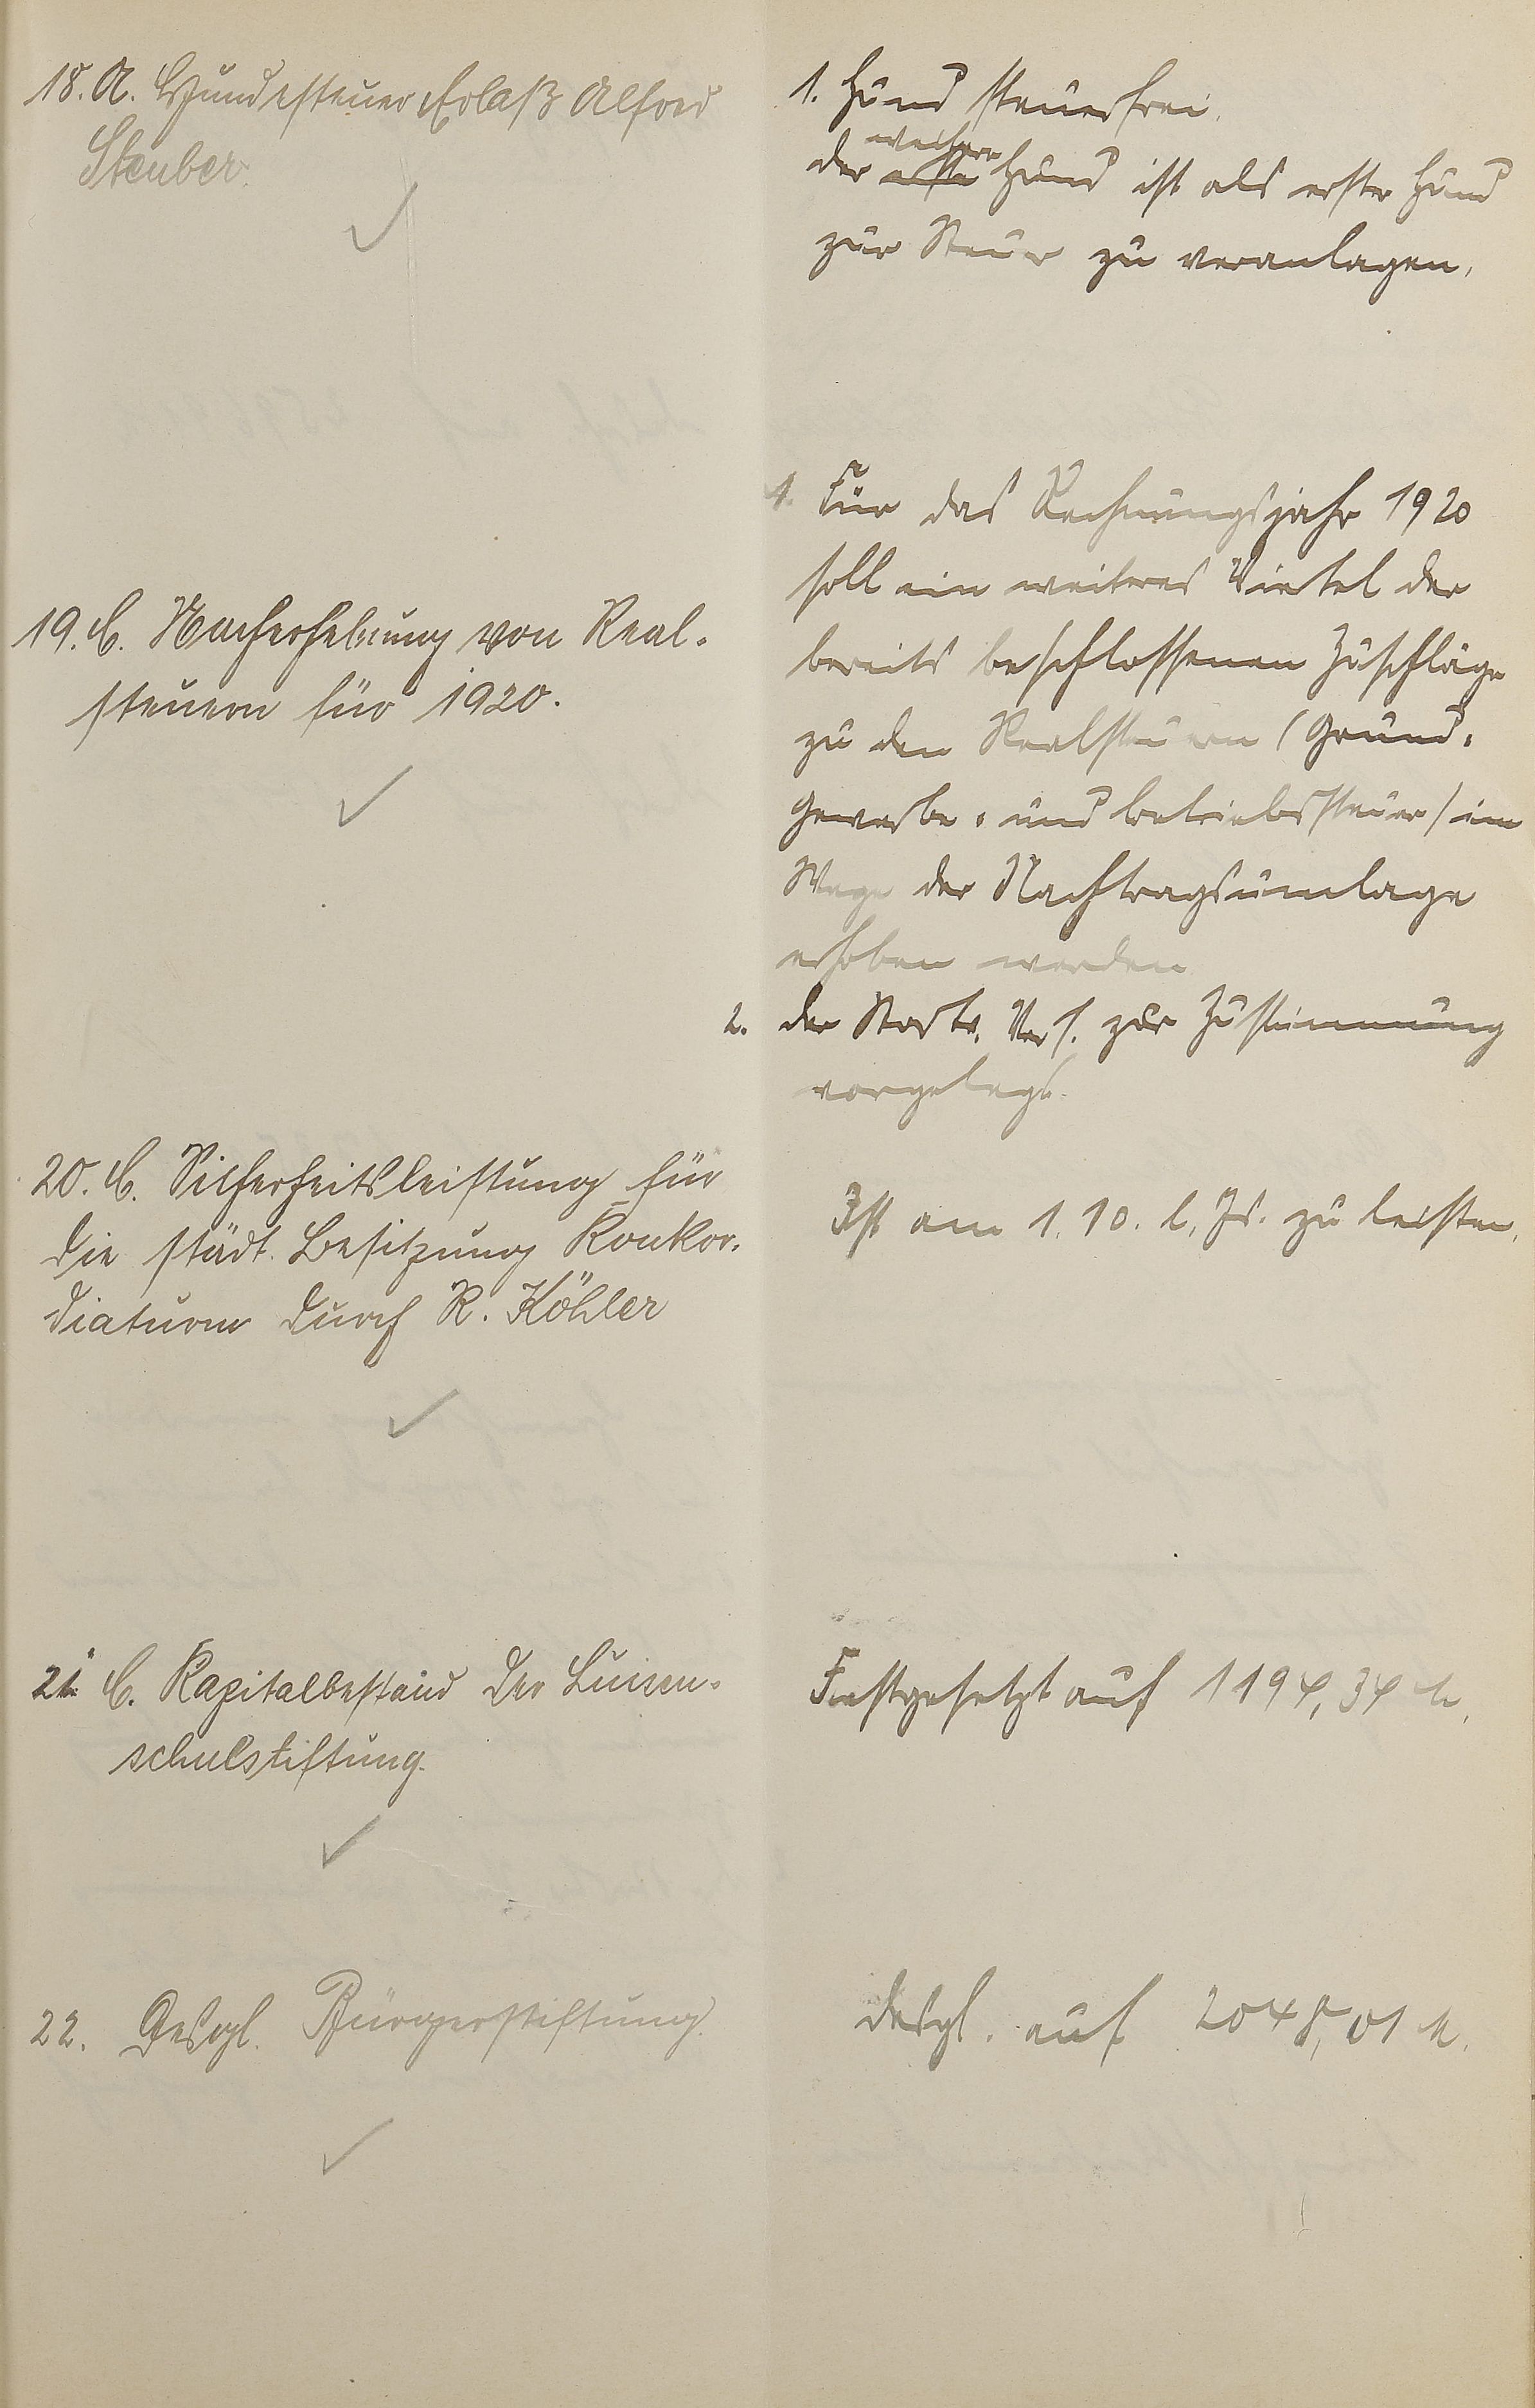 18. A. Hundesteuer Erlaß Alfred
Steuber.
1. Hund steuerfrei.
weitere
der erste Hund ist als erster Hund
zur Steuer zu veranlagen.
19. C. Nacherhebung von Real-
steuern für 1920.
1. Für das Rechnungsjahr 1920
soll ein weiteres Viertel der
bereits beschlossenen Zuschläge
zu den Realsteuern (Grund-
Gewerbe- und Betriebssteuer) im
Wege der Nachtragsumlage
erhoben werden
2. der Stadtv. Vers. zur Zustimmung
vorgelegt.
20. C. Sicherheitsleistung für
die städt. Besitzung Konkor-
diaturm durch R. Köhler
Ist am 1.10. l. Js. zu leisten.
21. C. Kapitalbestand der Luisen-
schulstiftung.
Festgesetzt auf 1194,34 M.
22. Desgl. Bürgerstiftung.
desgl. auf 2048,01 M.